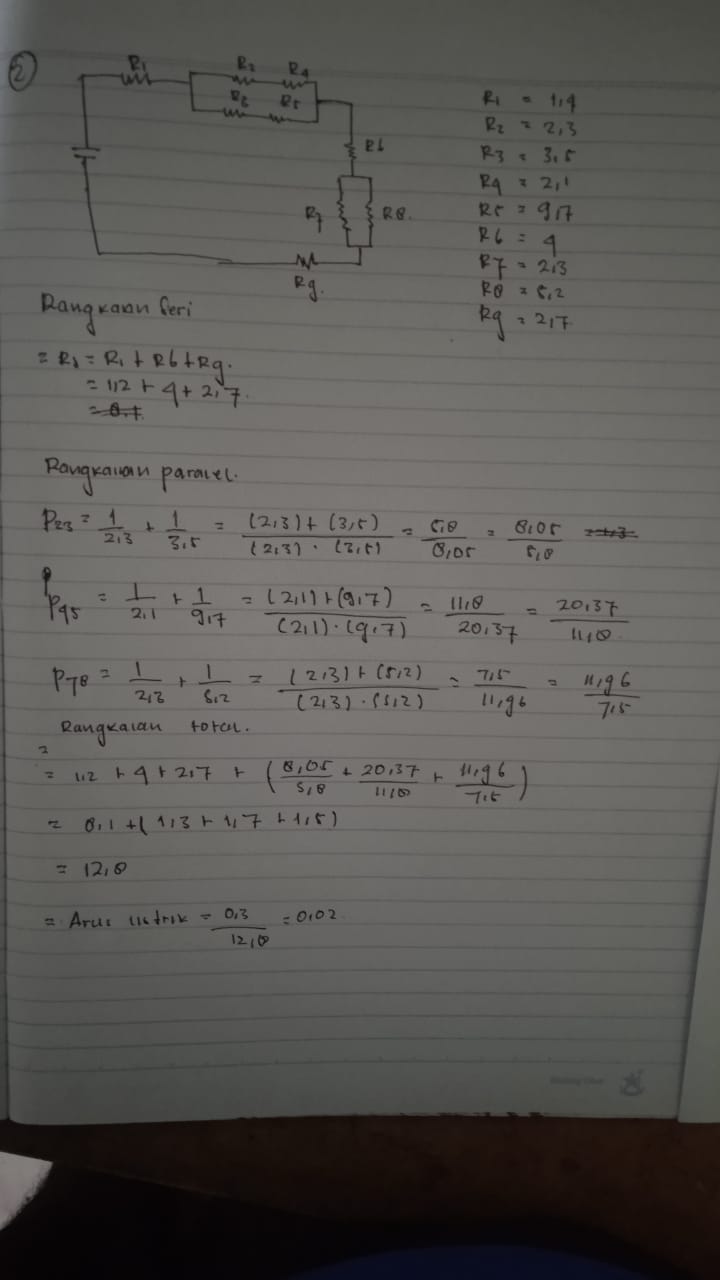 2
R1
R2 R4
R3 R5
R6
R7 R8.
Rg.
R1 = 1,4
R2 = 2,3
R3 = 3,5
R4 = 2,1
R5 = 9,7
R6 = 4
R7 = 2,3
R8 = 5,2
Rg = 2,7
Rangkaian Seri
= Rs = R1 + R6 + Rg.
= 1,2 + 4 + 2,7.
Rangkaian paralel.
P23 = 1/2,3 + 1/3,5 = (2,3) + (3,5)/(2,3) . (3,5) = 5,8/8,05 = 8,05/5,8
P45 = 1/2,1 + 1/9,7 = (2,1) + (9,7)/(2,1) . (9,7) = 11,8/20,37 = 20,37/11,8
P78 = 1/2,3 + 1/5,2 = (2,3) + (5,2)/(2,3) . (5,2) = 7,5/11,96 = 11,96/7,5
Rangkaian total.
=
= 1,2 + 4 + 2,7 + (8,05/5,8 + 20,37/11,8 + 11,96/7,5)
= 8,1 + (1,3 + 1,7 + 1,5)
= 12,8
= Arus listrik = 0,3/12,8 = 0,02